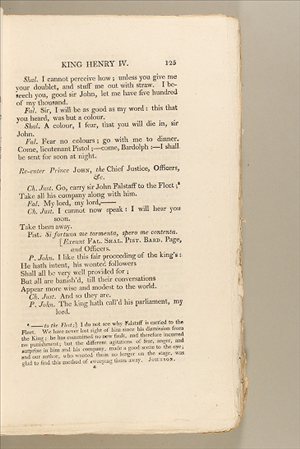 KING HENRY IV. 125
Shal. I cannot perceive how; unless you give me
your doublet, and stuff me out with straw. I be-
seech you, good sir John, let me have five hundred
of my thousand.
Fal. Sir, I will be as good as my word: this that
you heard, was but a colour.
Shal. A colour, I fear, that you will die in, sir
John.
Fal. Fear no colours; go with me to dinner.
Come, lieutenant Pistol;—come, Bardolph:—I shall
be sent for soon at night.
Re-enter Prince JOHN, the Chief Justice, Officers,
&c.
Ch. Just. Go, carry sir John Falstaff to the Fleet;*
Take all his company along with him.
Fal. My lord, my lord,——
Ch. Just. I cannot now speak: I will hear you
soon.
Take them away.
Pist. Si fortuna me tormenta, spero me contenta.
[Exeunt FAL. SHAL. PIST. BARD. Page,
and Officers.
P. John. I like this fair proceeding of the king's:
He hath intent, his wonted followers
Shall all be very well provided for;
But all are banish'd, till their conversations
Appear more wise and modest to the world.
Ch. Just. And so they are.
P. John. The king hath call'd his parliament, my
lord.
* ——to the Fleet;] I do not see why Falstaff is carried to the
Fleet. We have never lost sight of him since his dismission from
the King; he has committed no new fault, and therefore incurred
no punishment; but the different agitations of fear, anger, and
surprize in him and his company, made a good scene to the eye;
and our author, who wanted them no longer on the stage, was
glad to find this method of sweeping them away. JOHNSON.